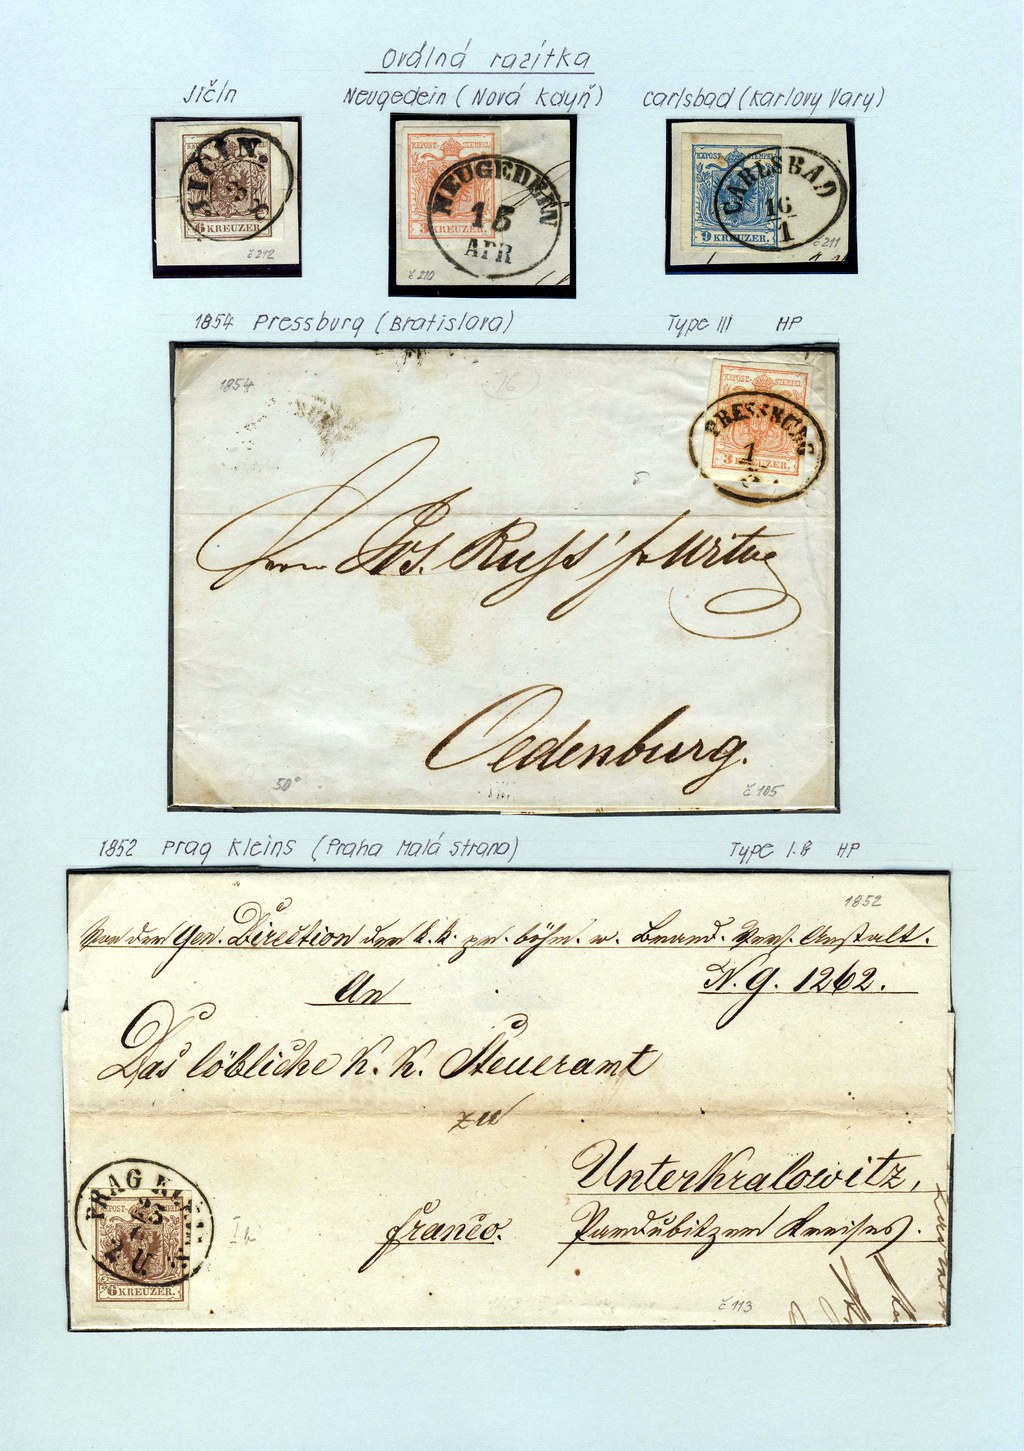 Oválná razítka
Jičín
Neugedein (Nová Kdyň)
Carlsbad (Karlovy Vary)
JIČIN.
6 KREUZER.
č 212
KKPOST-STEMPEL
NEUGEDEIN
15
APR
3 KREUZER.
č 210
KKPOST-STEMPEL
CARLSBAD
16
1
9 KREUZER.
č 211
1854 Pressburg (Bratislava)
Type III HP
1854
KKPOST-STEMPEL
PRESSBURG
1
3 KREUZER.
Herrn Jos. Russ' Witwe
Oedenburg.
50°
č 105
1852 Prag Kleins (Praha Malá strana)
Type I.B HP
1852
Von der Gen. Direction der k. k. pr. böhm. w. Brand. Vers. Anstalt.
An
N. G. 1262.
Das löbliche K. K. Steueramt
zu
Unterkralowitz,
franco.
Pardubitzer Kreises.
PRAG KLEINS.
23
2 U.
KKPOST-STEMPEL
6 KREUZER.
č 113